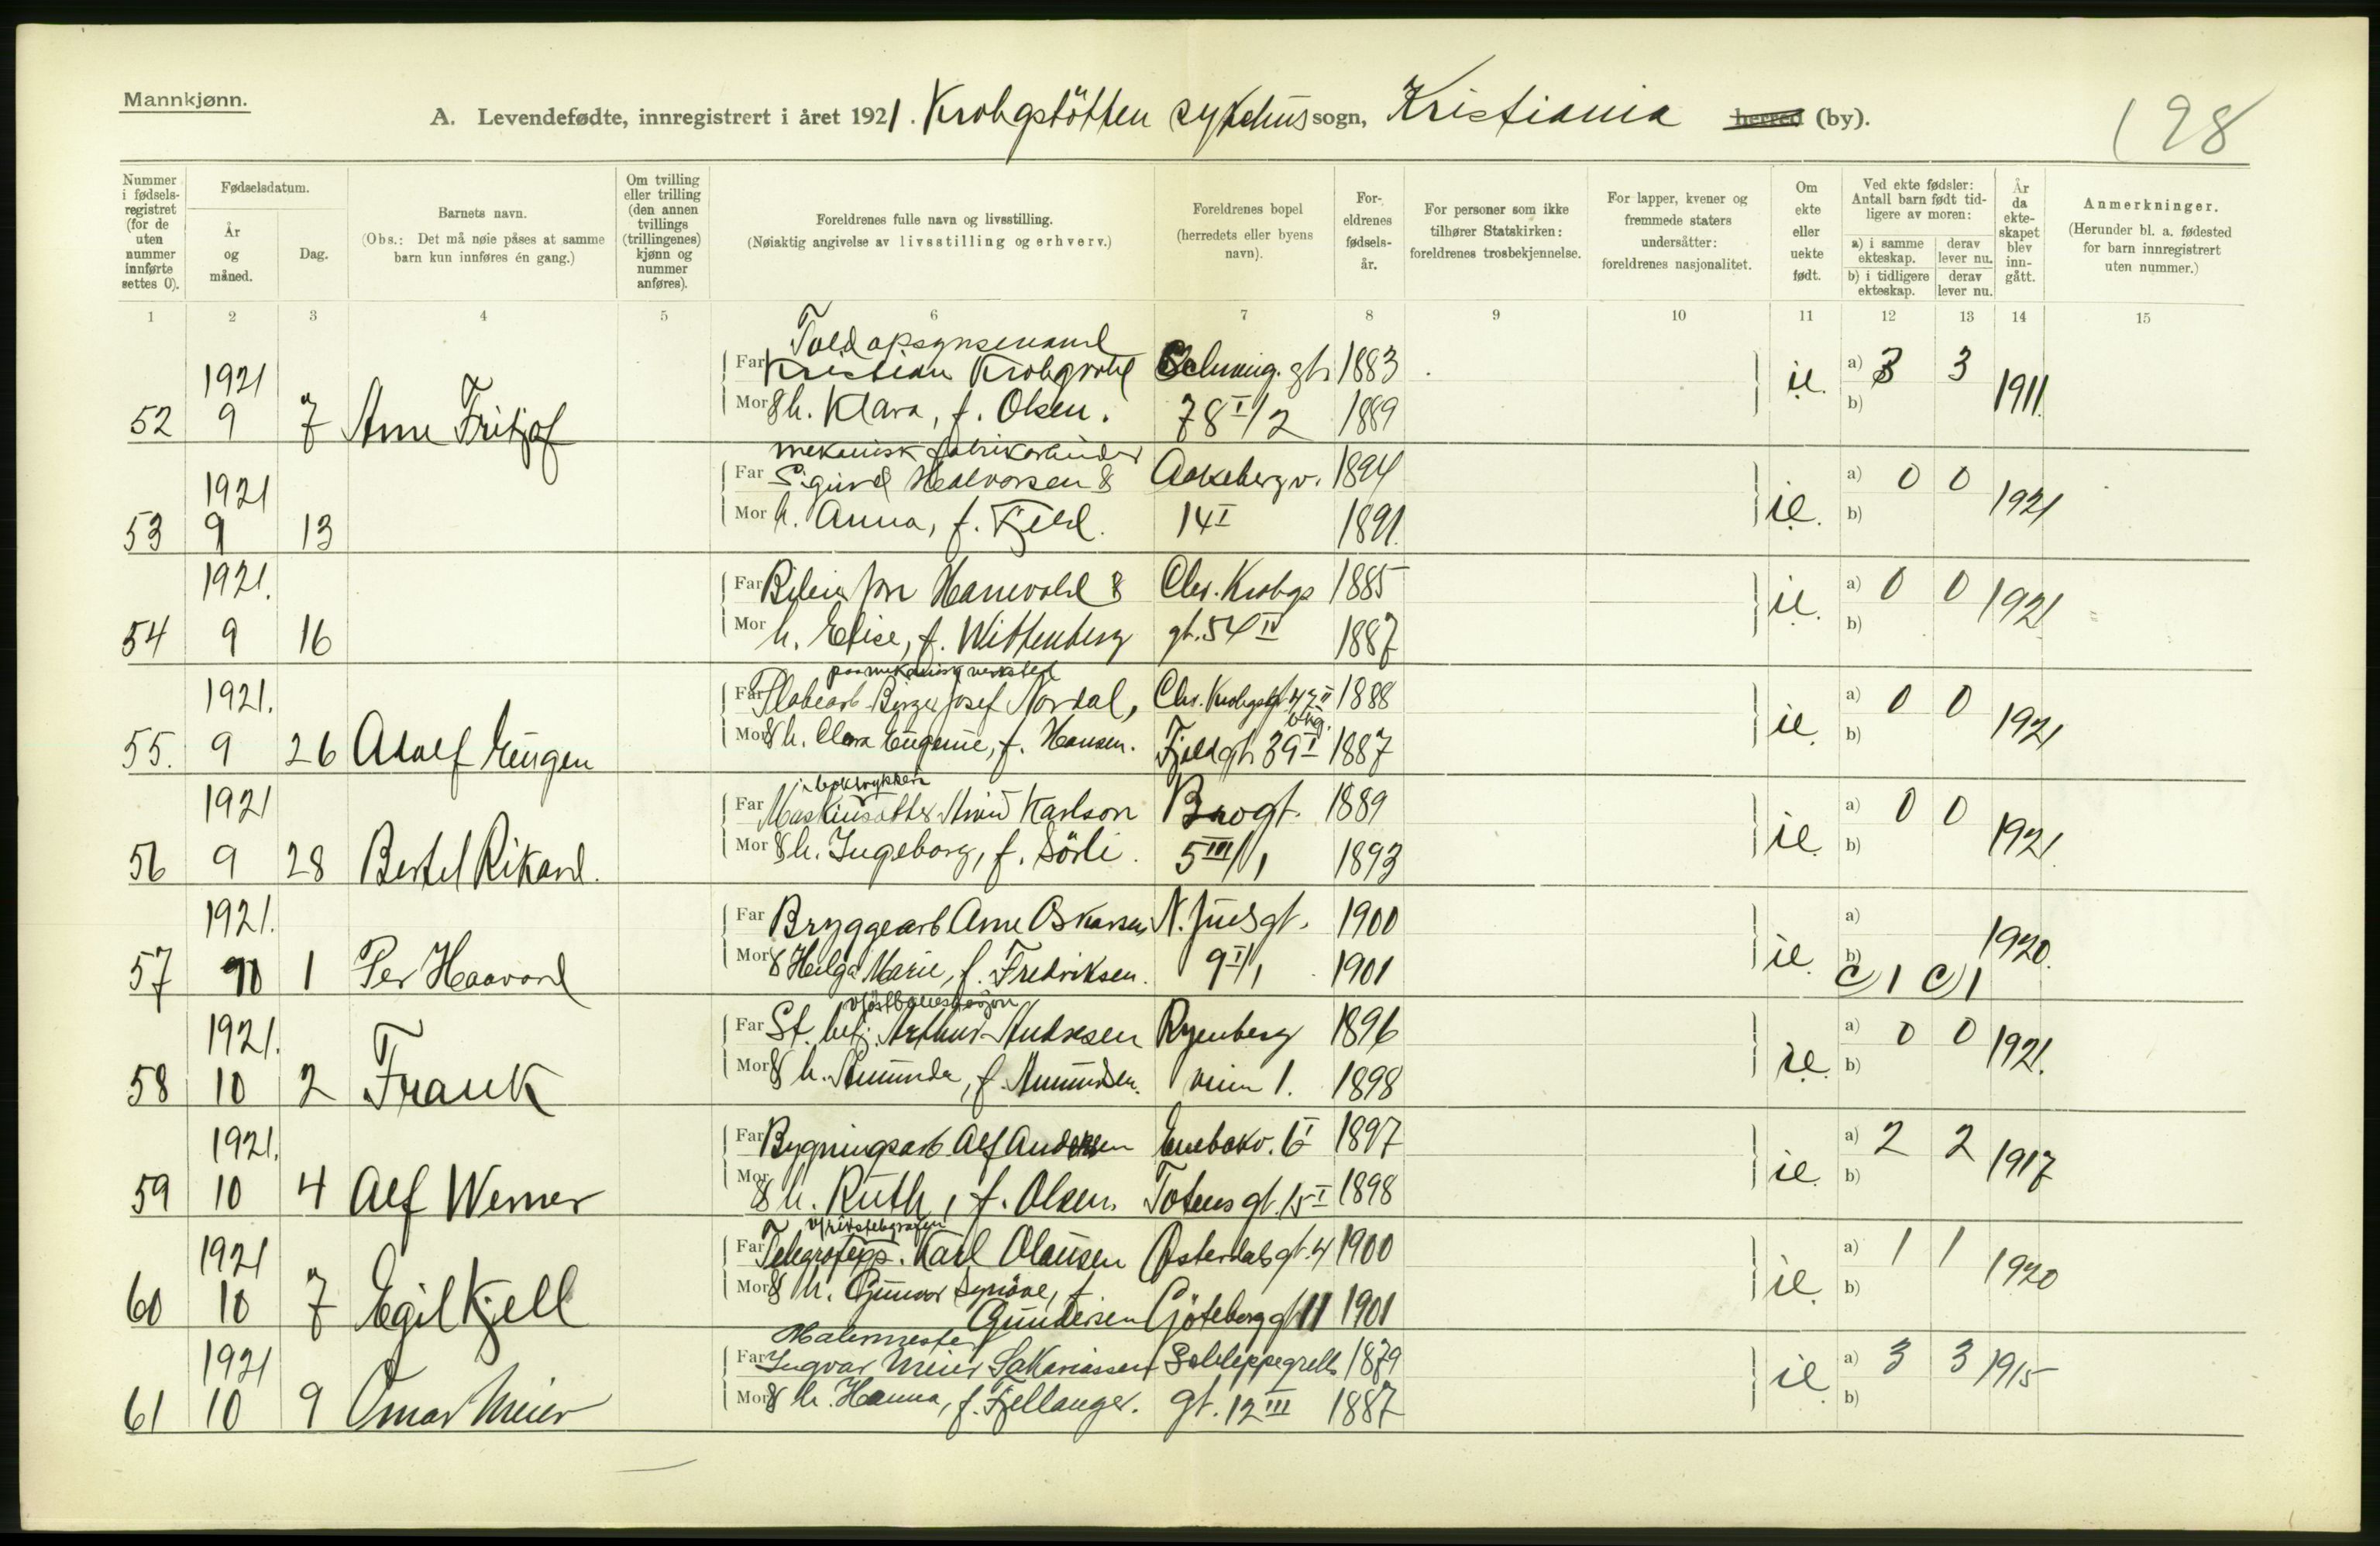 Mannkjønn.
A. Levendefødte, innregistrert i året 1921. Krohgstötten sykehus sogn, Kristiania herred (by).
198
Nummer i fødselsregistret (for de uten nummer innførte settes 0).
Fødselsdatum.
År og måned.
Dag.
Barnets navn.
(Obs.: Det må nøie påses at samme barn kun innføres én gang.)
Om tvilling eller trilling (den annen tvillings (trillingenes) kjønn og nummer anføres).
Foreldrenes fulle navn og livsstilling.
(Nøiaktig angivelse av livsstilling og erhverv.)
Foreldrenes bopel (herredets eller byens navn).
Foreldrenes fødselsår.
For personer som ikke tilhører Statskirken: foreldrenes trosbekjennelse.
For lapper, kvener og fremmede staters undersåtter: foreldrenes nasjonalitet.
Om ekte eller uekte født.
Ved ekte fødsler: Antall barn født tidligere av moren:
a) i samme ekteskap. derav lever nu.
b) i tidligere ekteskap. derav lever nu.
År da ekteskapet blev inngått.
Anmerkninger.
(Herunder bl. a. fødested for barn innregistrert uten nummer.)
1 2 3 4 5 6 7 8 9 10 11 12 13 14 15
Toldopsynsmand
1921 Far Kristian Krohgvold Schweig. gt. 1883 a) 3 3
52 9 7 Arne Fritjof Mor & h. Klara, f. Olsen. 78 I/2 1889 ie. b) 1911.
mekanisk fabrikarbeider
1921 Far Sigurd Halvorsen & Aakebergv. 1894 a) 0 0
53 9 13 Mor h. Anna, f. Kjeld. 14 I 1891. ie. b) 1921
1921. Far Bileier Jon Hanevold & Chr. Krohgs 1885 a) 0 0
54 9 16 Mor h. Elise, f. Wittenberg gt. 54 IV 1887 ie. b) 1921
paa mekanisk verksted
1921. Far Platearb. Birger Josef Nordal, Chr. Krohgsgt 47 II 1888 a) 0 0
55. 9 26 Adolf Eugen Mor & h. Clara Eugenie, f. Hansen. Fjeldgt. 39 I 1887 ie. b) 1921
i boktrykkeri
1921 Far Maskinsætter Arvid Karlson Brogt. 1889 a) 0 0
56 9 28 Bertel Rikard. Mor & h. Ingeborg, f. Sörli. 5 III/1 1893 ie. b) 1921.
1921. Far Bryggearb Arne Oskarsen N. Juelsgt. 1900 a)
57 10 1 Per Haavard Mor & Helga Marie, f. Fredriksen. 9 II/1 1901 ie. b) c) 1 c) 1 1920.
v/östbanestasjon
1921. Far St. betj. Arthur Andresen Ryenberg 1896 a) 0 0
58 10 2 Frank Mor & h. Amunda, f. Amundsen. veien 1. 1898 ie. b) 1921.
1921. Far Bygningsarb Alf Andersen Enebakv. 6 I 1897 a) 2 2
59 10 4 Alf Werner Mor & h. Ruth, f. Olsen. Totens gt. 15 I 1898 ie. b) 1917
v/rikstelegrafen
1921 Far Telegrafepp. Karl Olausen Østerdalsgt. 4 1900 a) 1 1
60 10 7 Egil Kjell Mor & h. Gunvor Synöve, f. ie. b) 1920
Gundersen Göteborggt 11 1901
Malermester
1921 Far Ingvar Meier Sakariassen Schleppegrells 1879 a) 3 3
61 10 9 Omar Meier Mor & h. Hanna, f. Fjellanger. gt. 12 III 1887 ie. b) 1915